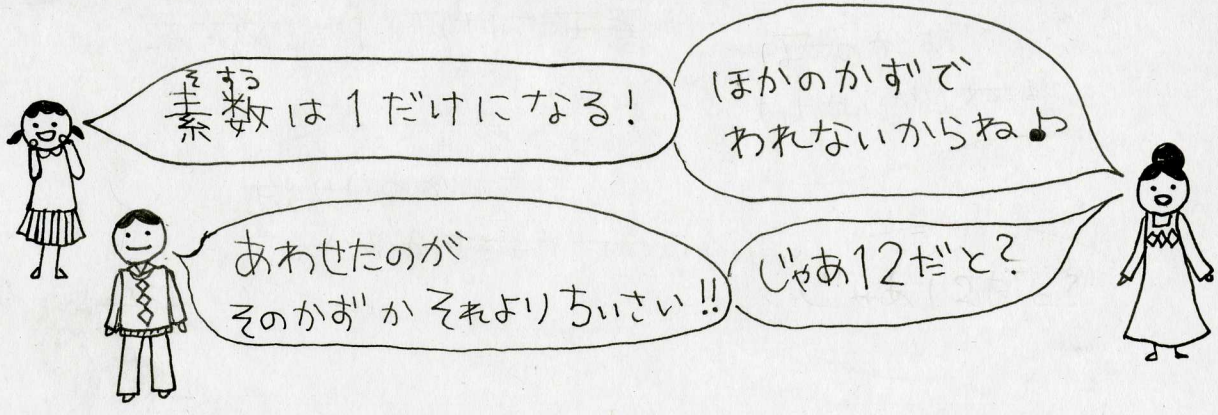 そすう
素数は1だけになる!
ほかのかずで
われないからね♪
あわせたのが
そのかずか それよりちいさい!!
じゃあ12だと?